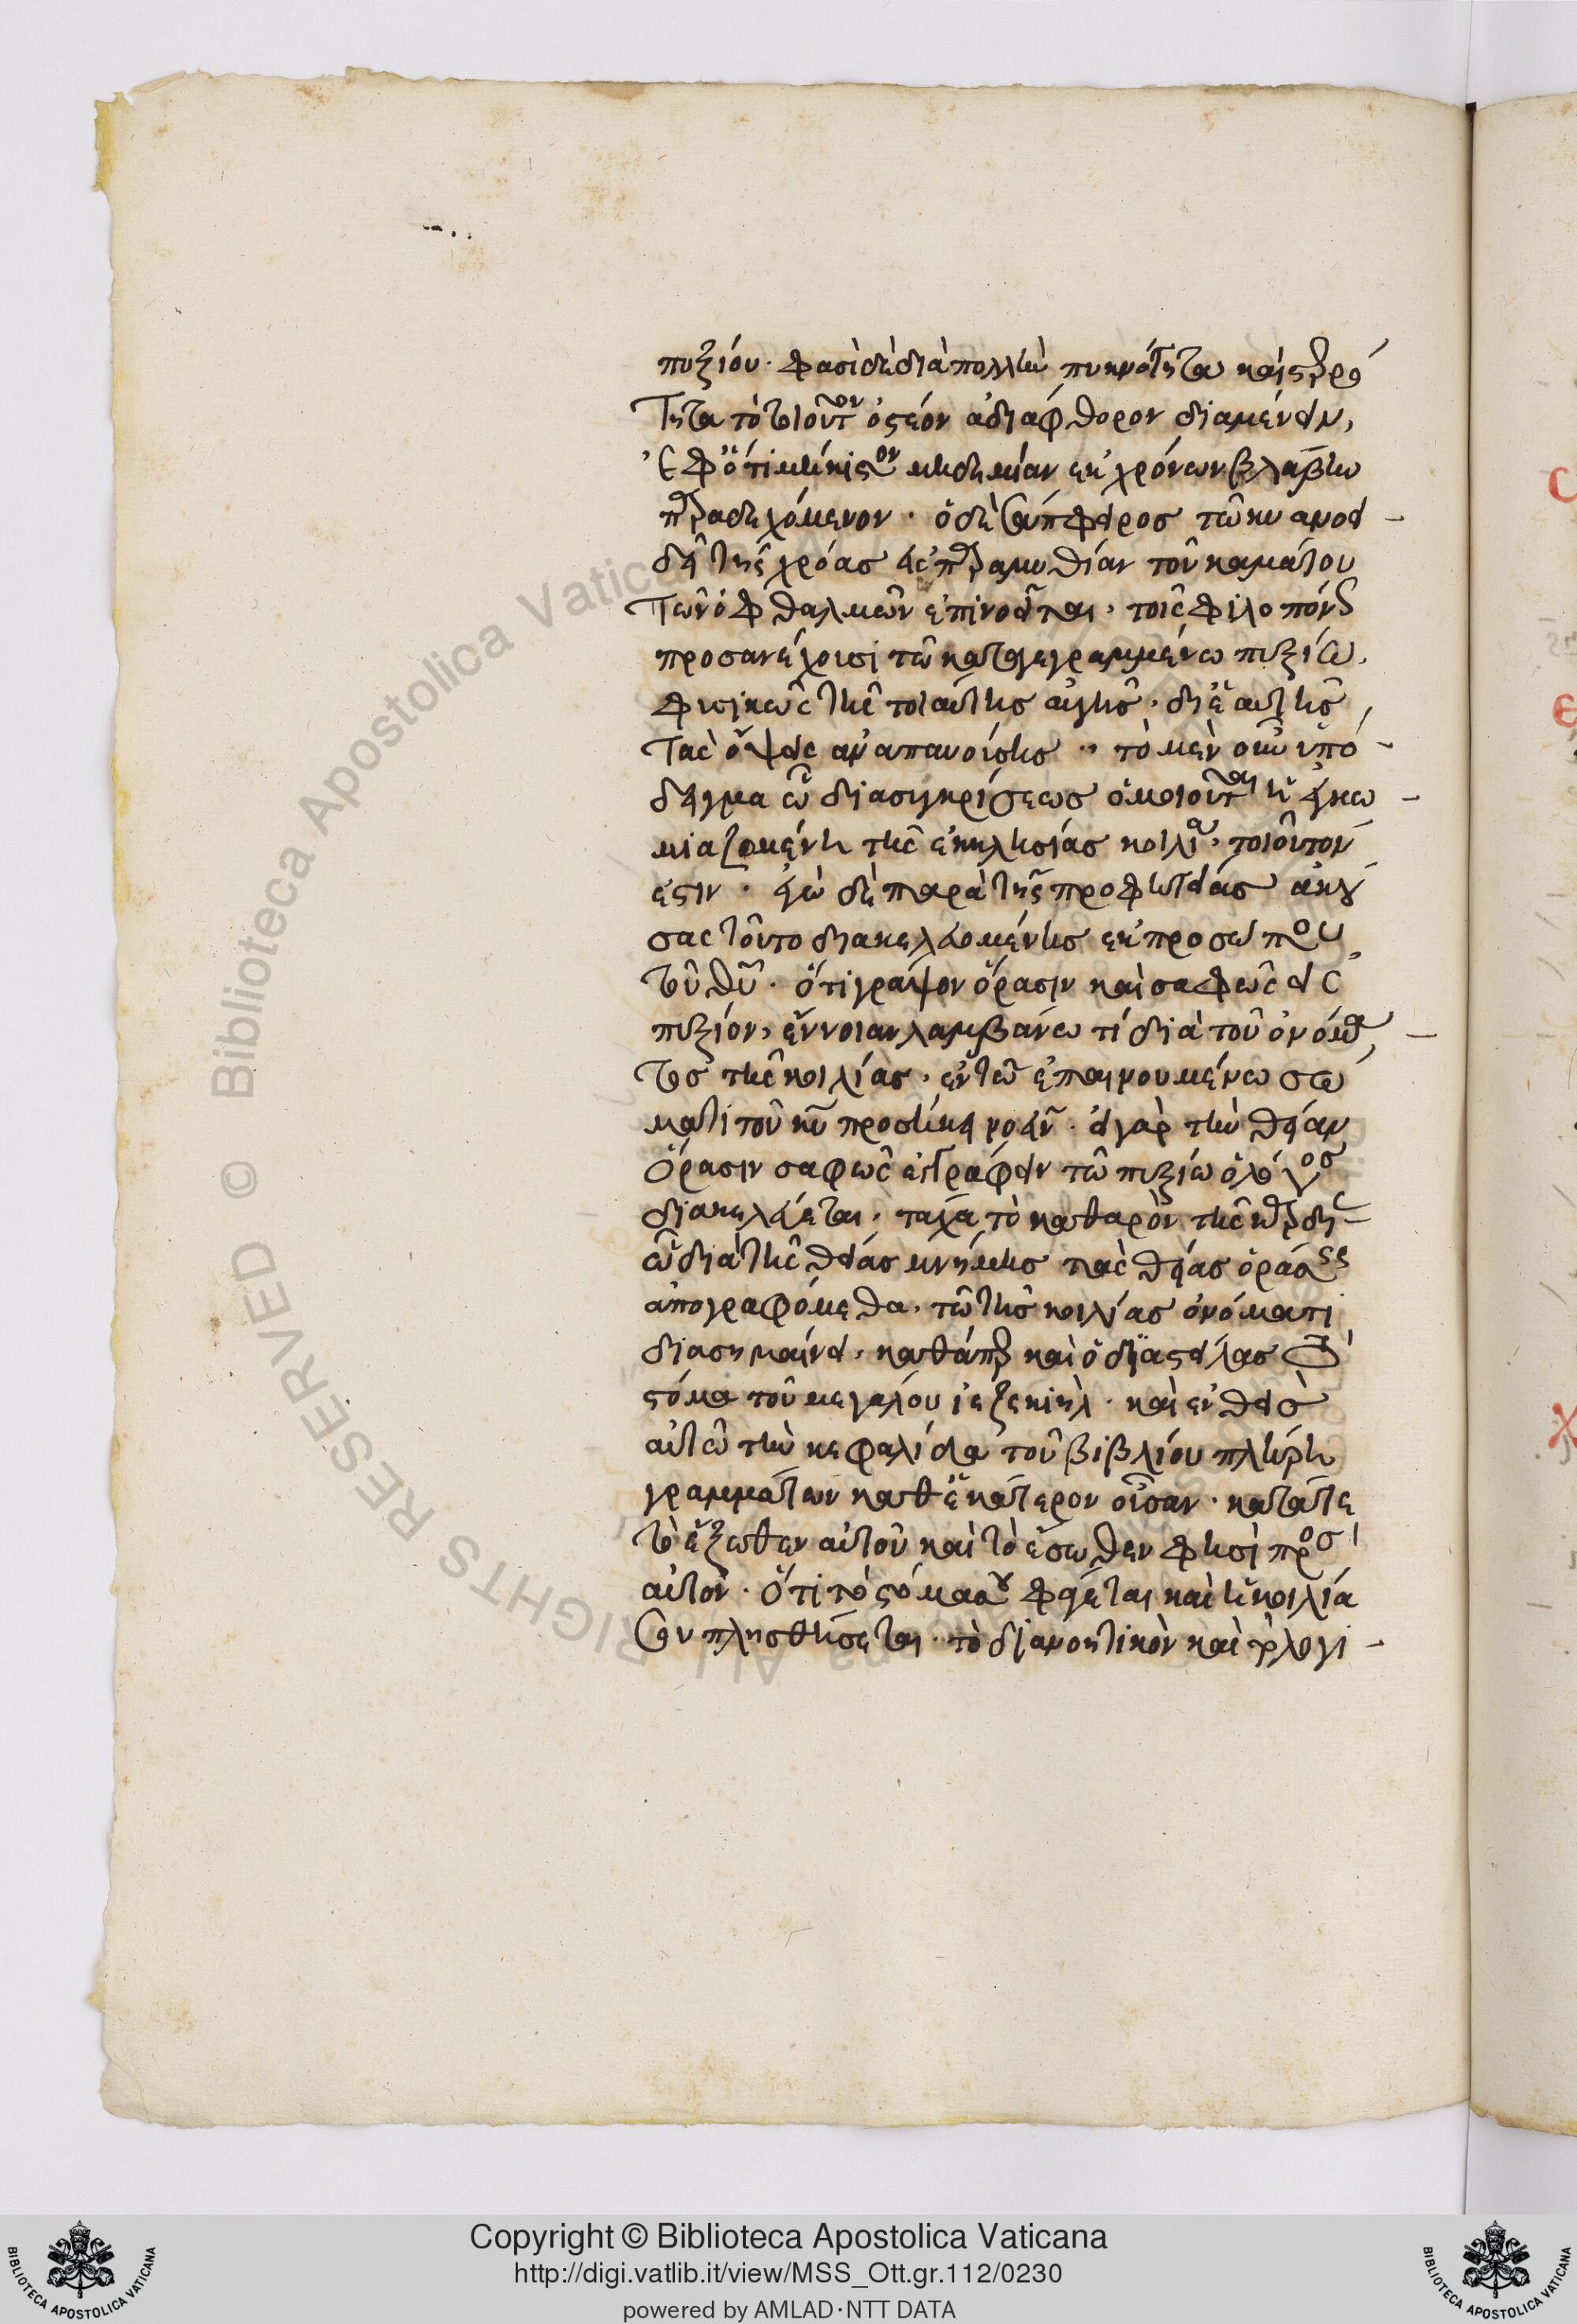 πυξίου· φασὶ δὲ διὰ πολλὴν πυκνότητα καὶ στερρό
τητα τὸ τοιοῦτον ὀστέον ἀδιάφθορον διαμένειν,
ἐφ' ὅτι μήκιστον μηδεμίαν ἐκ χρόνων βλάβην
παραδεχόμενον· ὁ δὲ σάπφειρος τῶ κυανοει-
δεῖ τῆς χρόας εἰς παραμυθίαν τοῦ καμάτου
τῶν ὀφθαλμῶν ἐπινοεῖται, τοῖς φιλοπόνως
προσανέχουσι τῶ καταγεγραμμένω πυξίω,
φυσικῶς τῆς τοιαύτης αὐγῆς, δι' ἑαυτῆς
τὰς ὄψεις ἀναπαυούσης·· τὸ μὲν οὖν ὑπό-
δειγμα ὧ διὰ συγκρίσεως ὁμοιοῦται ἡ ἐγκω-
μιαζομένη τῆς ἐκκλησίας κοιλία, τοιοῦτόν
ἐστιν· ἐγὼ δὲ παρὰ τῆς προφητείας ἀκού
σας τοῦτο διακελευομένης ἐκ προσώπου
τοῦ θυ· ὅτι γράψον ὅρασιν καὶ σαφῶς εἰς
πυξίον, ἔννοιαν λαμβάνω τί διὰ τοῦ ὀνόμα-
τος τῆς κοιλίας, ἐν τῶ ἐπαινουμένω σώ
ματι τοῦ κυ προσήκει νοεῖν· εἰ γὰρ τὴν θείαν
ὅρασιν σαφῶς ἐγγράφειν τῶ πυξίω ὁ λόγος
διακελεύεται, τάχα τὸ καθαρὸν τῆς καρδίας
ὧ διὰ τῆς θείας μνήμης τὰς θείας ὁράσεις
ἀπογραφόμεθα, τῶ τῆς κοιλίας ὀνόματι
διασημαίνει, καθάπερ καὶ ὁ διαστείλας τὸ
στόμα τοῦ μεγάλου ἰεζεκιὴλ· καὶ ἐνθεὶς
αὐτῶ τὴν κεφαλίδα τοῦ βιβλίου πλήρη
γραμμάτων καθ' ἑκάτερον οὖσαν· κατά τε
τὸ ἔξωθεν αὐτοῦ καὶ τὸ ἔσωθεν φησὶ πρὸς
αὐτόν· ὅτι τὸ στόμα σου φάγεται καὶ ἡ κοιλία
σου πλησθήσεται· τὸ διανοητικὸν καὶ τὸ λογι-
Copyright © Biblioteca Apostolica Vaticana
http://digi.vatlib.it/view/MSS_Ott.gr.112/0230
powered by AMLAD·NTT DATA
BIBLIOTECA APOSTOLICA VATICANA
BIBLIOTECA APOSTOLICA VATICANA
© Biblioteca Apostolica Vaticana ALL RIGHTS RESERVED